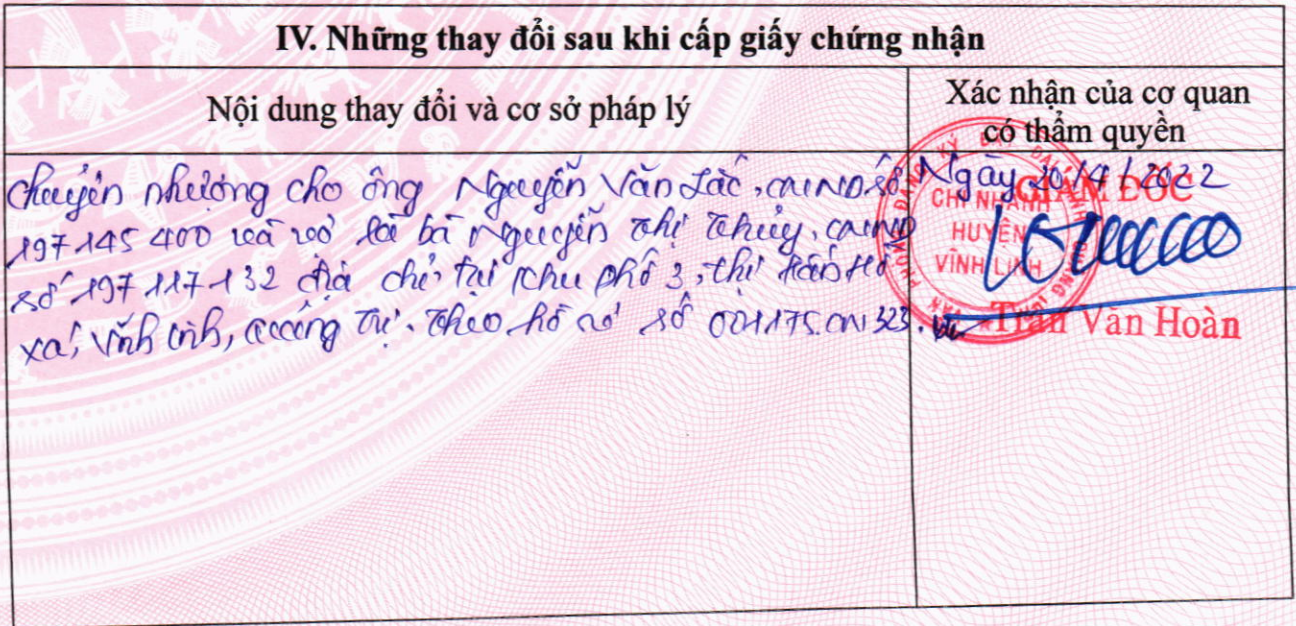 IV. Những thay đổi sau khi cấp giấy chứng nhận
Nội dung thay đổi và cơ sở pháp lý
Xác nhận của cơ quan
có thẩm quyền
Chuyển nhượng cho ông Nguyễn Văn Lắc, CMND số
197 145 400 và vợ là bà Nguyễn Thị Thủy, CMND
số 197 117 132 địa chỉ tại Khu phố 3, thị trấn Hồ
xá, Vĩnh Linh, Quảng Trị. Theo hồ sơ số 001175.CN 323.
Ngày 20/4/2022
GIÁM ĐỐC
CHI NHÁNH
HUYỆN
VĨNH LINH
Trần Văn Hoàn